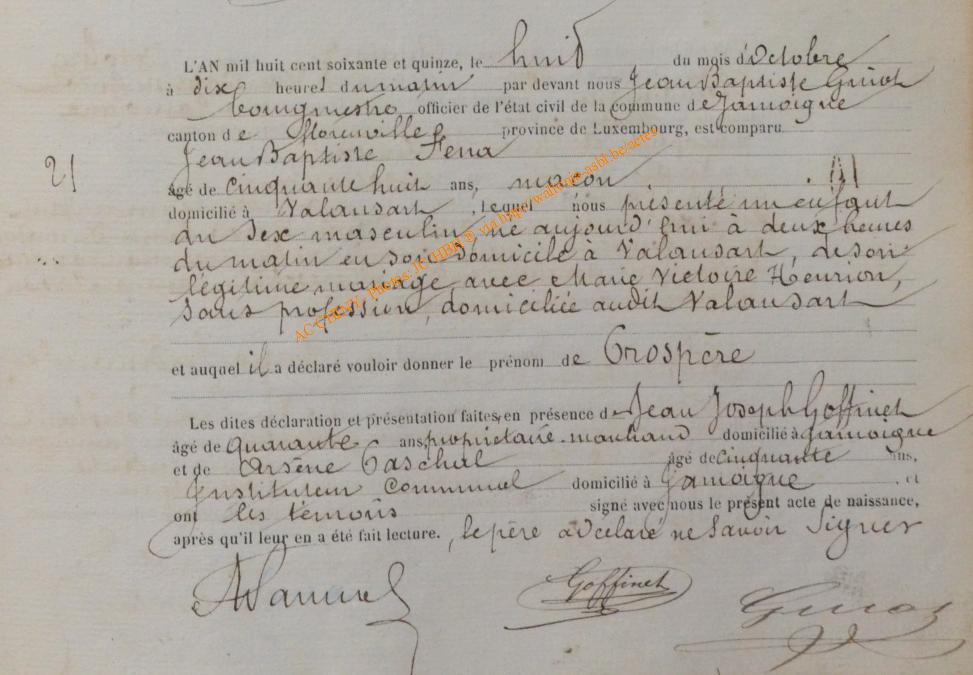 L'AN mil huit cent soixante et quinze, le huit du mois d'Octobre
à dix heures du matin par devant nous Jean Baptiste Guiot
bourgmestre officier de l'état civil de la commune de Jamoigne
canton de Florenville province de Luxembourg, est comparu
Jean Baptiste Fena
21
âgé de cinquante huit ans, maçon
domicilié à Valansart, lequel nous présente un enfant
du sexe masculin, né aujourd'hui à deux heures
du matin en son domicile à Valansart, de son
légitime mariage avec Marie Victoire Henrion,
sans profession, domiciliée audit Valansart
et auquel il a déclaré vouloir donner le prénom de Prospère
Les dites déclaration et présentation faites en présence de Jean Joseph Goffinet
âgé de quarante ans, propriétaire-marchand domicilié à Jamoigne
et de Arsène Paschal âgé de cinquante ans,
Instituteur communal domicilié à Jamoigne et
ont les témoins signé avec nous le présent acte de naissance,
après qu'il leur en a été fait lecture. le père a déclaré ne savoir signer
Goffinet
Guiot
AC CHINY, Photos: JC HBH @ via http://wallonia-asbl.be/actes